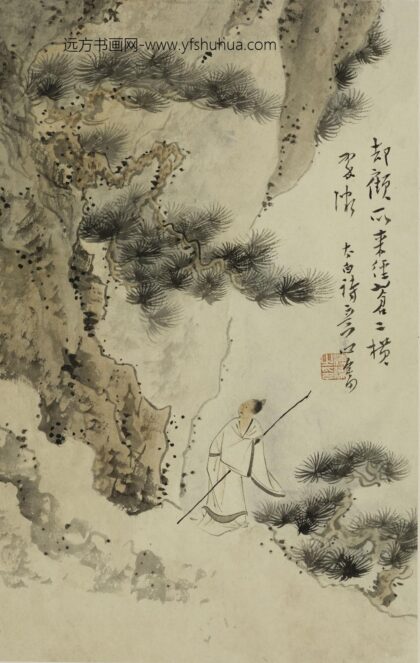 远方书画网-www.yfshuhua.com
却顧所来徑蒼〻横
翠微 太白詩意 心畬